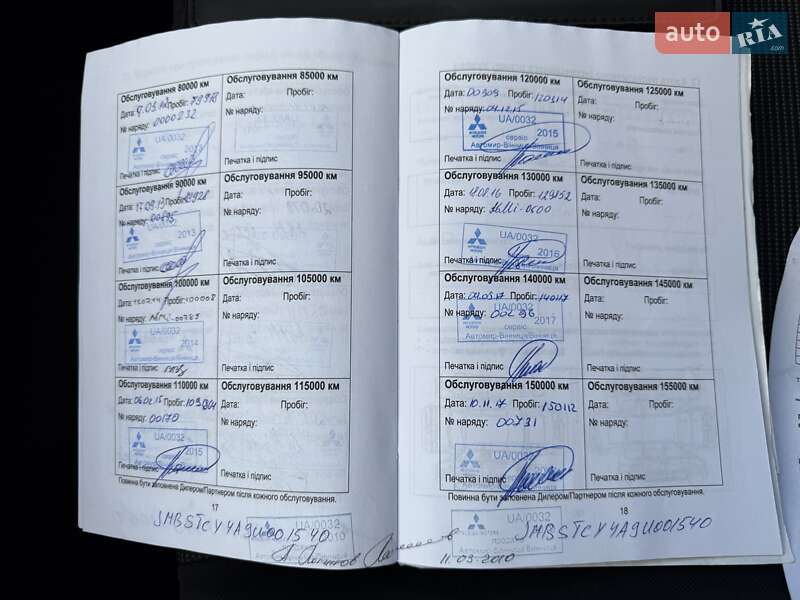 auto RIA .com
Обслуговування 80000 км
Дата: Пробіг:
№ наряду: 0000232
UA/0032
сервіс 2013
Печатка і підпис
Обслуговування 85000 км
Дата: Пробіг:
№ наряду:
Печатка і підпис
Обслуговування 90000 км
Дата: 17.09.13 Пробіг:
№ наряду: 00495
2013
Печатка і підпис
Обслуговування 95000 км
Дата: Пробіг:
№ наряду:
Печатка і підпис
Обслуговування 100000 км
Дата: Пробіг: 100008
№ наряду:
UA/0032
сервіс 2014
Автомир-Вінниця Вінниця
Печатка і підпис
Обслуговування 105000 км
Дата: Пробіг:
№ наряду:
Печатка і підпис
Обслуговування 110000 км
Дата: 06.02.15 Пробіг:
№ наряду: 00170
UA/0032
2015
Печатка і підпис
Обслуговування 115000 км
Дата: Пробіг:
№ наряду:
Печатка і підпис
Повинна бути заповнена Дилером/Партнером після кожного обслуговування.
17
JMBSTCY4A9U001540
UA/0032
2010
Обслуговування 120000 км
Дата: 00909 Пробіг: 120314
№ наряду: 04.12.15
UA/0032
MITSUBISHI MOTORS сервіс 2015
Автомир-Вінниця/Вінниця
Печатка і підпис
Обслуговування 125000 км
Дата: Пробіг:
№ наряду:
Печатка і підпис
Обслуговування 130000 км
Дата: Пробіг: 129152
№ наряду:
UA/0032
2016
Печатка і підпис
Обслуговування 135000 км
Дата: Пробіг:
№ наряду:
Печатка і підпис
Обслуговування 140000 км
Дата: 04.05.17 Пробіг: 140117
№ наряду: 00296
UA/0032
сервіс 2017
Автомир-Вінниця/Вінниця
Печатка і підпис
Обслуговування 145000 км
Дата: Пробіг:
№ наряду:
Печатка і підпис
Обслуговування 150000 км
Дата: 10.11.17 Пробіг: 150112
№ наряду: 00731
UA/0032
Печатка і підпис
Обслуговування 155000 км
Дата: Пробіг:
№ наряду:
Печатка і підпис
Повинна бути заповнена Дилером/Партнером після кожного обслуговування.
18
UA/0032
JMBSTCY4A9U001540
11.03.2010